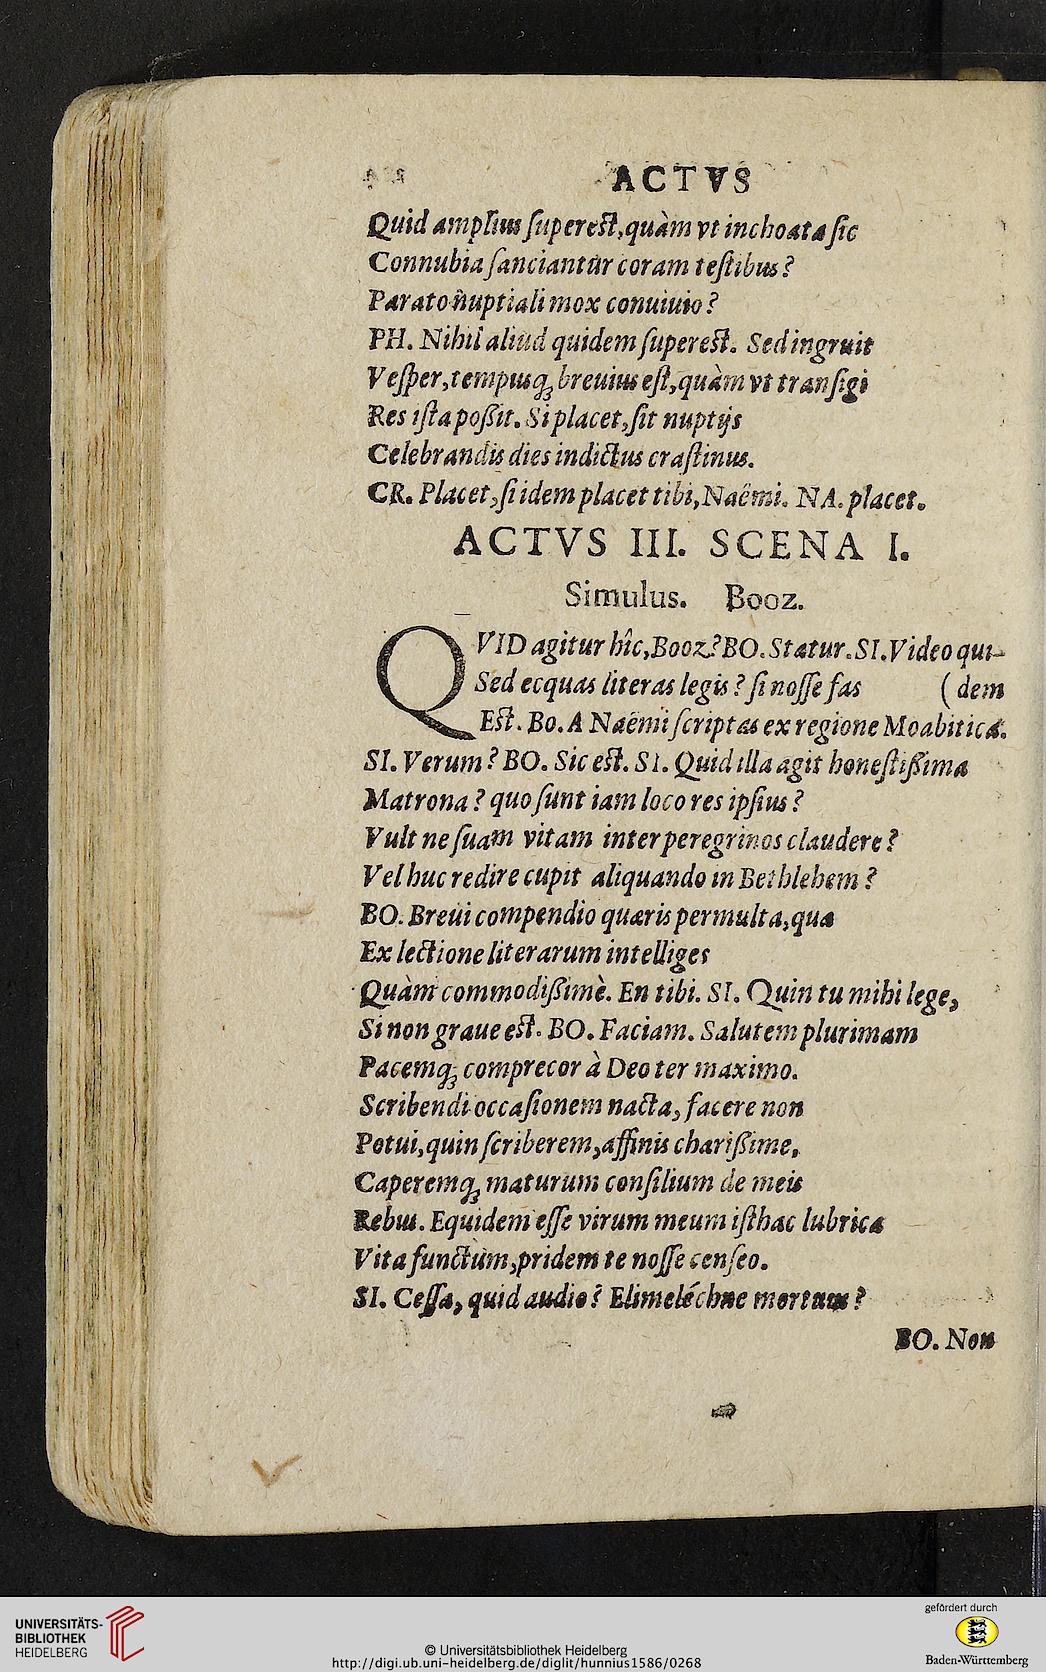 ACTVS
Quid amplius ſupereſt, quàm vt inchoata ſic
Connubia ſanciantur coram teſtibus?
Parato nuptiali mox conuiuio?
PH. Nihil aliud quidem ſupereſt. Sed ingruit
Veſper, tempusq́; breuius eſt, quàm vt tranſigi
Res iſta poßit. Si placet, ſit nuptijs
Celebrandis dies indictus craſtinus.
CR. Placet, ſi idem placet tibi, Naëmi. NA. placet.
ACTVS III. SCENA I.
Simulus. Booz.
QVID agitur hîc, Booz? BO. Statur. SI. Video qui-
Sed ecquas literas legis? ſi noſſe fas (dem
Eſt. Bo. A Naëmi ſcriptas ex regione Moabitica.
SI. Verum? BO. Sic eſt. SI. Quid illa agit honeſtißima
Matrona? quo ſunt iam loco res ipſius?
Vult ne ſuam vitam inter peregrinos claudere?
Vel huc redire cupit aliquando in Bethlehem?
BO. Breui compendio quæris permulta, qua
Ex lectione literarum intelliges
Quàm commodißimè. En tibi. SI. Quin tu mihi lege,
Si non graue eſt. BO. Faciam. Salutem plurimam
Pacemq́; comprecor à Deo ter maximo.
Scribendi occaſionem nacta, facere non
Potui, quin ſcriberem, affinis charißime,
Caperemq́; maturum conſilium de meis
Rebus. Equidem eſſe virum meum iſthac lubrica
Vita functum, pridem te noſſe cenſeo.
SI. Ceſſa, quid audio? Elimeléchne mortuus?
BO. Non
UNIVERSITÄTS-
BIBLIOTHEK
HEIDELBERG
© Universitätsbibliothek Heidelberg
http://digi.ub.uni-heidelberg.de/diglit/hunnius1586/0268
gefördert durch
Baden-Württemberg